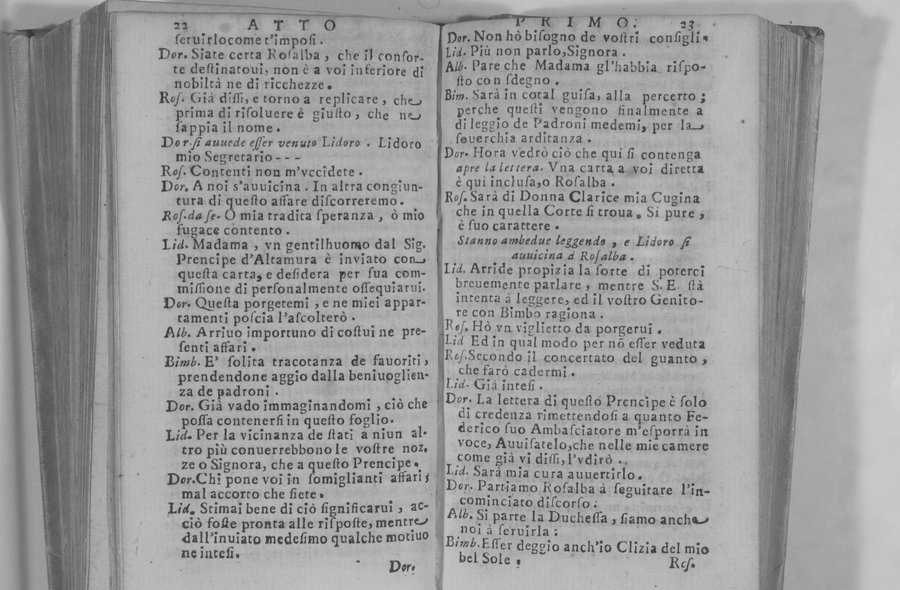 22 ATTO
ſeruirlo come t'impoſi.
Dor. Siate certa Roſalba, che il conſor-
te deſtinatoui, non è a voi inferiore di
nobiltà ne di ricchezze.
Roſ. Già diſſi, e torno a replicare, che
prima di riſoluere è giuſto, che ne
ſappia il nome.
Dor ſi auuede eſſer venuto Lidoro. Lidoro
mio Segretario - - -
Roſ. Contenti non m'vccidete.
Dor. A noi s'auuicina. In altra congiun-
tura di queſto affare diſcorreremo.
Roſ. da ſe. O mia tradita ſperanza, ò mio
fugace contento.
Lid. Madama, vn gentilhuomo dal Sig.
Prencipe d'Altamura è inviato con
queſta carta, e deſidera per ſua com-
miſſione di perſonalmente oſſequiarui.
Dor. Queſta porgetemi, e ne miei appar-
tamenti poſcia l'aſcolterò.
Alb. Arriuo importuno di coſtui ne pre-
ſenti affari.
Bimb. E' ſolita tracotanza de fauoriti,
prendendone aggio dalla beniuoglien-
za de padroni.
Dor. Già vado immaginandomi, ciò che
poſſa contenerſi in queſto foglio.
Lid. Per la vicinanza de ſtati a niun al-
tro più conuerrebbono le voſtre noz-
ze o Signora, che a queſto Prencipe.
Dor. Chi pone voi in ſomiglianti affari,
mal accorto che ſiete.
Lid. Stimai bene di ciò ſignificarui, ac-
ciò foſte pronta alle riſpoſte, mentre
dall'inuiato medeſimo qualche motiuo
ne inteſi.
Dor.
PRIMO. 23
Dor. Non hò biſogno de voſtri conſigli.
Lid. Più non parlo, Signora.
Alb. Pare che Madama gl'habbia riſpo-
ſto con ſdegno.
Bim. Sarà in cotal guiſa, alla percerto;
perche queſti vengono finalmente a
di leggio de Padroni medemi, per la
ſouerchia arditanza.
Dor. Hora vedrò ciò che qui ſi contenga
apre la lettera. Vna carta a voi diretta
è qui incluſa, o Roſalba.
Roſ. Sarà di Donna Clarice mia Cugina
che in quella Corte ſi troua. Si pure,
è ſuo carattere.
Stanno ambedue leggendo, e Lidoro ſi
auuicina à Roſalba.
Lid. Arride propizia la ſorte di poterci
breuemente parlare, mentre S. E. ſtà
intenta à leggere, ed il voſtro Genito-
re con Bimbo ragiona.
Roſ. Hò vn viglietto da porgerui.
Lid Ed in qual modo per nõ eſſer veduta
Roſ. Secondo il concertato del guanto,
che farò cadermi.
Lid. Già inteſi.
Dor. La lettera di queſto Prencipe è ſolo
di credenza rimettendoſi a quanto Fe-
derico ſuo Ambaſciatore m'eſporrà in
voce, Auuiſatelo, che nelle mie camere
come già vi diſſi, l'vdirò.
Lid. Sarà mia cura auuertirlo.
Dor. Partiamo Roſalba à ſeguitare l'in-
cominciato diſcorſo:
Alb. Si parte la Ducheſſa, ſiamo anche
noi à ſeruirla:
Bimb. Eſſer deggio anch'io Clizia del mio
bel Sole.
Roſ.